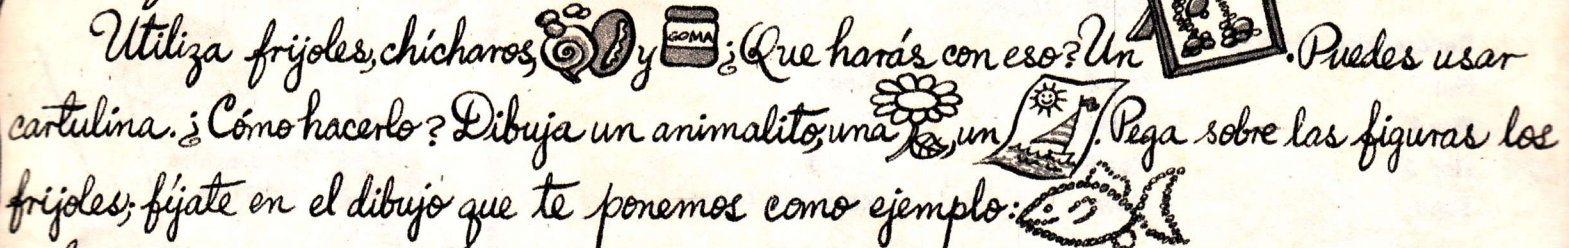 Utiliza frijoles, chícharos, y GOMA ¿Que harás con eso? Un . Puedes usar
cartulina. ¿Cómo hacerlo? Dibuja un animalito, una , un . Pega sobre las figuras los
frijoles; fíjate en el dibujo que te ponemos como ejemplo: